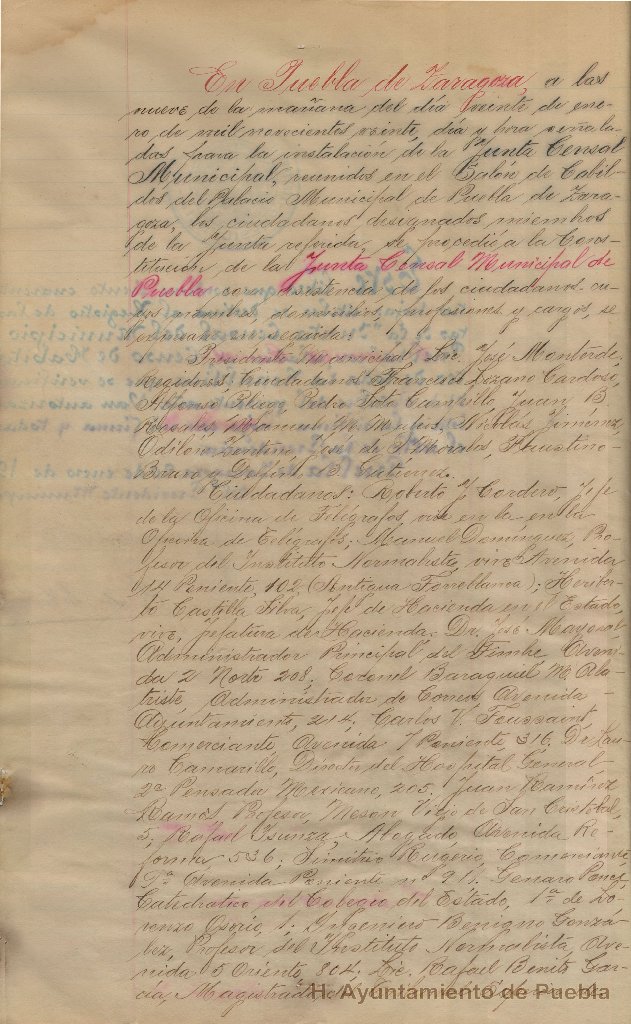 En Puebla de Zaragoza, a las
nueve de la mañana del día veinte de ene-
ro de mil novecientos veinte, día y hora señala-
das para la instalación de la Junta Censal
Municipal, reunidos en el Salón de Cabil-
dos del Palacio Municipal de Puebla de Zara-
goza, los ciudadanos designados miembros
de la Junta referida, se procedió a la Cons-
titución de la Junta Censal Municipal de
Puebla con asistencia de los ciudadanos cu-
yos nombres, domicilios, profesiones y cargos, se
expresan en seguida:
Presidente Municipal, José Monterde,
Regidores Ciudadanos Francisco Lozano Cardoso,
Alfonso Pedro Soto Campillo, Juan B.
Rosales, Manuel M. Nicolás Jiménez,
Odilón José de P. Morales, Faustino
Bravo, B. Gutiérrez.
Ciudadanos: Roberto J. Cordero, Jefe
de la Oficina de Telégrafos, vive en la en la
Oficina de Telégrafos; Manuel Domínguez, Pro-
fesor del Instituto Normalista, vive Avenida
14 Poniente, 102 (Antigua Torreblanca); Heriber-
to Castilla Silva, Jefe de Hacienda en el Estado,
vive, Jefatura de Hacienda. Dr. José Mayoral
Administrador Principal del Timbre Aveni-
da 2 Norte 208. Coronel Baraquiel M. Ala-
triste, Administrador de Correos Avenida
Ayuntamiento, 214; Carlos V. Toussaint,
Comerciante, Avenida 7 Poniente, 316. Dr. Lau-
ro Camarillo, Director del Hospital General
2a. Pensador Mexicano, 205. Juan Ramírez
Ramos, Profesor, Meson Viejo de San Cristobal,
5, Rafael Isunza, Abogado, Avenida Re-
forma 536; Rugerio, Comerciante,
Avenida Poniente nº 91. Genaro Ponce,
Catedratico del Colegio del Estado, 1a. de Lo-
renzo Osorio, 1; Ingeniero Benigno Gonzá-
lez, Profesor del Instituto Normalista, Ave-
nida 5 Oriente, 804; Lic. Rafael Benito Gar-
cía, Magistrado
H. Ayuntamiento de Puebla